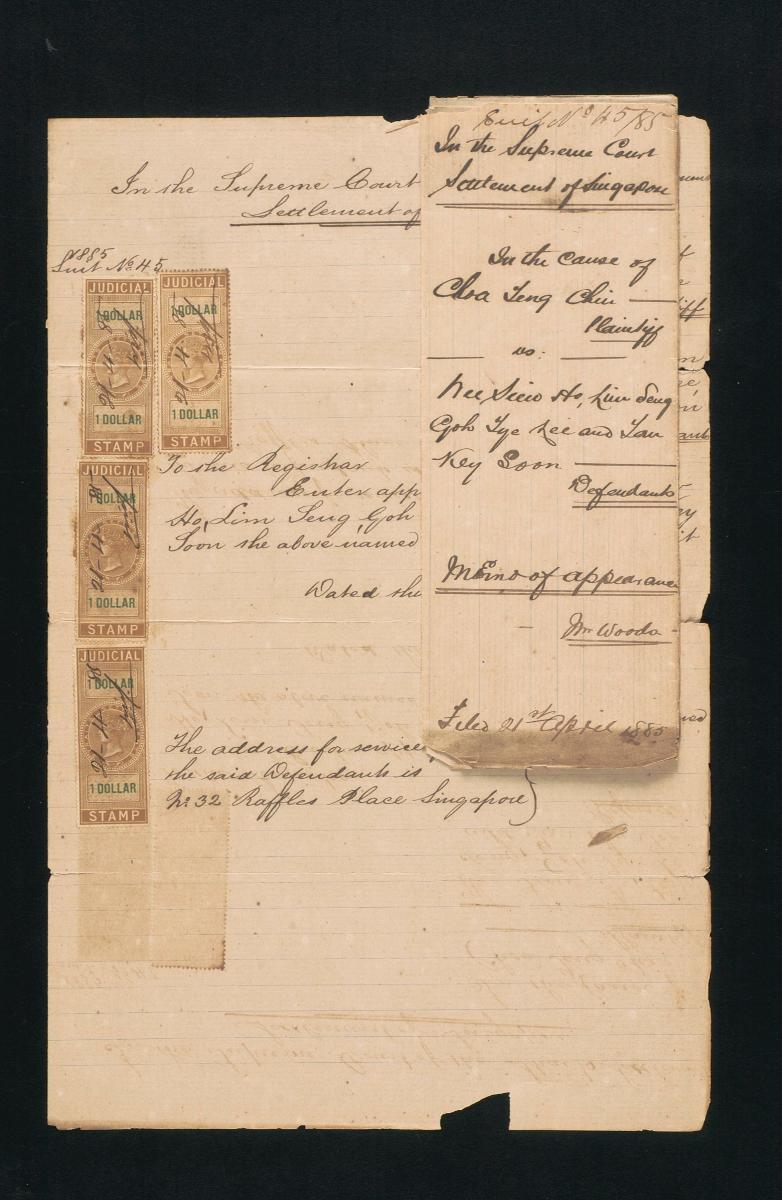 In the Supreme Court
Settlement of
1885
Suit No 45
JUDICIAL
1 DOLLAR
1 DOLLAR
STAMP
JUDICIAL
1 DOLLAR
1 DOLLAR
STAMP
JUDICIAL
1 DOLLAR
1 DOLLAR
STAMP
JUDICIAL
1 DOLLAR
1 DOLLAR
STAMP
To the Registrar
Enter app
Ho, Lim Seng, Goh
Soon the above named
Dated the
The address for service
the said Defendants is
No. 32 Raffles Place Singapore
Suit No 45/85
In the Supreme Court
Settlement of Singapore
In the cause of
Choa Teng Chiu
Plaintiff
vs:
Wee Siew Ho, Lim Seng
Goh Tye Lee and Tan
Key Soon
Defendants
Memo of appearance
Wm Woods
Filed 21st April 1885